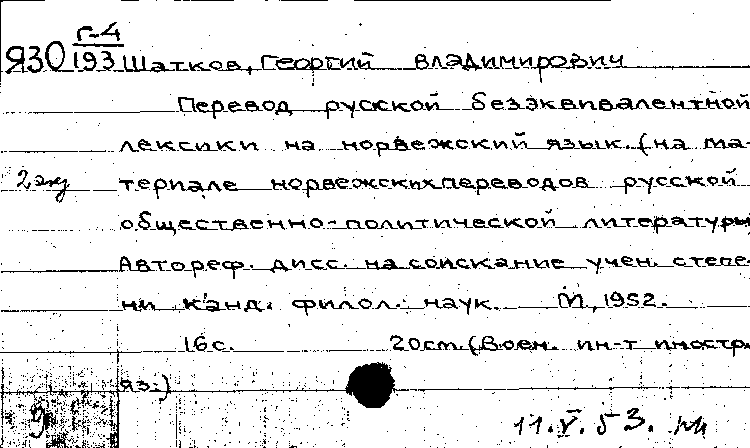 Г-4
ЯЗО 193 Шатков, Георгий Владимирович
Перевод русской безэквивалентной
лексики на норвежский язык. (на ма-
2 экз териале норвежских переводов русской
общественно-политической литературы
Автореф. дисс. на соискание учен. степе-
ни канд. филол. наук. М, 1952.
16с. 20см. (Воен. ин-т иностр.
яз.)
11.V.53.